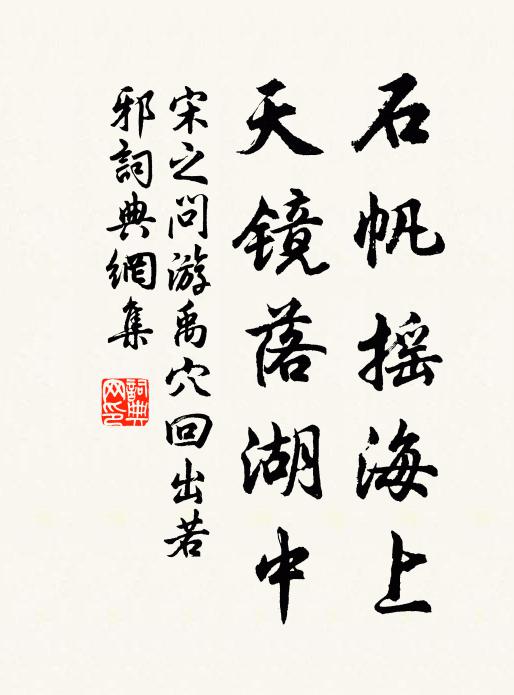 石帆摇海上
天镜落湖中
宋之问游禹穴回出若
邪詞典網集
詞典
网印